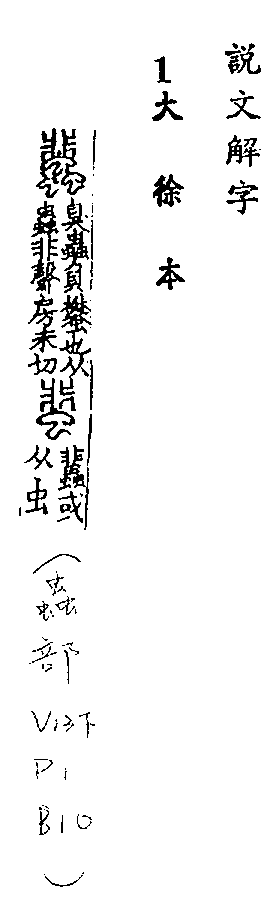 說文解字
1大徐本
臭蟲負蠜也从
蟲非聲房未切
蠹或
从虫
(蟲部
V13下
P1
B10
)